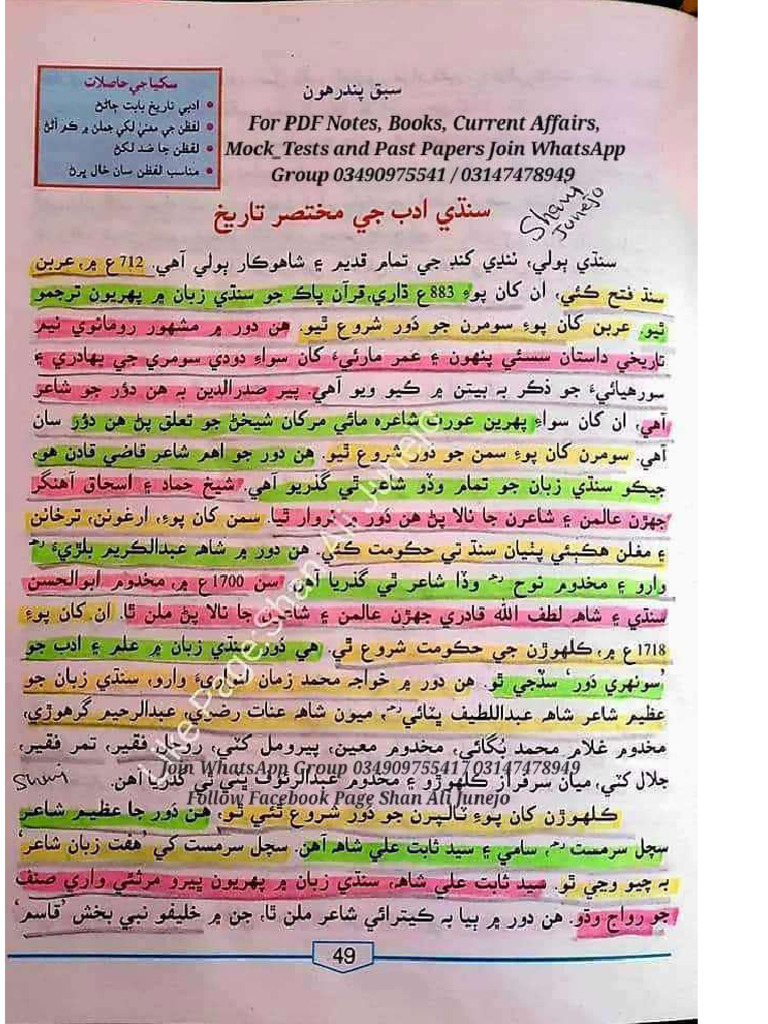 سبق پندرهون
سکيا جي حاصلات
• ادبي تاريخ بابت ڄاڻڻ
• لفظن جي معنيٰ لکي جملن ۾ ڪم آڻڻ
• لفظن جا ضد لکڻ
• مناسب لفظن سان خال ڀرڻ
For PDF Notes, Books, Current Affairs,
Mock_Tests and Past Papers Join WhatsApp
Group 03490975541 / 03147478949
Shany
Junejo
سنڌي ادب جي مختصر تاريخ
سنڌي ٻولي، ننڍي کنڊ جي تمام قديم ۽ شاهوڪار ٻولي آهي. 712ع ۾، عربن
سنڌ فتح ڪئي، ان کان پوءِ 883ع ڌاري، قرآن پاڪ جو سنڌي زبان ۾ پهريون ترجمو
ٿيو. عربن کان پوءِ سومرن جو دَور شروع ٿيو. هن دور ۾ مشهور رومانوي نيم
تاريخي داستان سسئي پنهون ۽ عمر مارئيءَ کان سواءِ دودي سومري جي بهادري ۽
سورهيائيءَ جو ذڪر به بيتن ۾ ڪيو ويو آهي. پير صدرالدين به هن دؤر جو شاعر
آهي، ان کان سواءِ پهرين عورت شاعره مائي مرکان شيخڻ جو تعلق پڻ هن دؤر سان
آهي. سومرن کان پوءِ سمن جو دَور شروع ٿيو. هن دور جو اهم شاعر قاضي قادن هو،
جيڪو سنڌي زبان جو تمام وڏو شاعر ٿي گذريو آهي. شيخ حماد ۽ اسحاق آهنگر
جهڙن عالمن ۽ شاعرن جا نالا پڻ هن دَور ۾ نروار ٿيا. سمن کان پوءِ، ارغونن، ترخانن
۽ مغلن هڪٻئي پٺيان سنڌ تي حڪومت ڪئي. هن دور ۾ شاهه عبدالڪريم بلڙيءَ
وارو ۽ مخدوم نوح رح وڏا شاعر ٿي گذريا آهن. سن 1700ع ۾، مخدوم ابوالحسن
سنڌي ۽ شاهه لطف الله قادري جهڙن عالمن ۽ شاعرن جا نالا پڻ ملن ٿا. ان کان پوءِ
1718ع ۾، ڪلهوڙن جي حڪومت شروع ٿي. هي دَور سنڌي زبان ۾ علم ۽ ادب جو
’سونهري دَور‘ سڏجي ٿو. هن دور ۾ خواجه محمد زمان لنواريءَ وارو، سنڌي زبان جو
عظيم شاعر شاهه عبداللطيف ڀٽائي رح، ميون شاهه عنات رضوي، عبدالرحيم گرهوڙي،
مخدوم غلام محمد ٻگائي، مخدوم معين، پيرومل کٽي، روحل فقير، تمر فقير،
Join WhatsApp Group 03490975541 / 03147478949
جلال کٽي، ميان سرفراز ڪلهوڙو ۽ مخدوم عبدالرئوف ڀٽي ٿي گذريا آهن.
Shany
Follow Facebook Page Shan Ali Junejo
ڪلهوڙن کان پوءِ ٽالپرن جو دَور شروع ٿئي ٿو، هن دَور جا عظيم شاعر
سچل سرمست رح، سامي ۽ سيد ثابت علي شاهه آهن. سچل سرمست کي ’هفت زبان شاعر‘
به چيو وڃي ٿو. سيد ثابت علي شاهه، سنڌي زبان ۾ پهريون ڀيرو مرثئي واري صنف
جو رواج وڌو. هن دور ۾ ٻيا به ڪيترائي شاعر ملن ٿا، جن ۾ خليفو نبي بخش ’قاسم‘
Like Page: Shan Ali Junejo
49